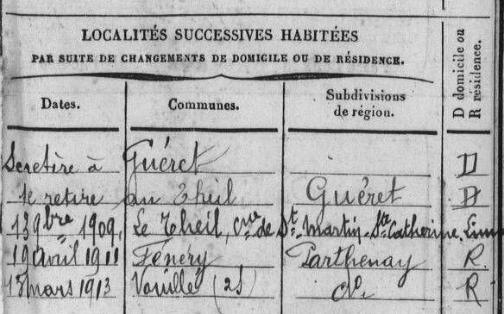 LOCALITÉS SUCCESSIVES HABITÉES
PAR SUITE DE CHANGEMENTS DE DOMICILE OU DE RÉSIDENCE.
D domicile ou
R résidence.
Dates. Communes. Subdivisions
de région.
Se retire à Guéret D
se retire au Theil Guéret D
13 9bre 1909, Le Theil, cne de St Martin-Ste Catherine,
19 avril 1911 Fénéry Parthenay R
mars 1913 Vouillé (2S) do R